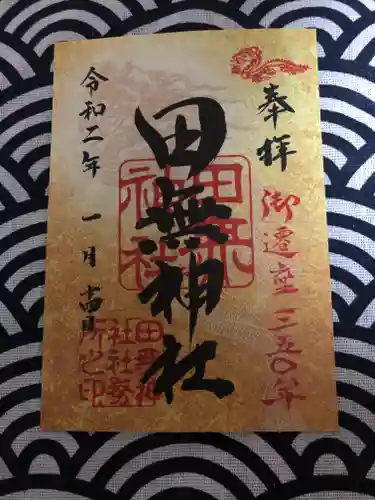 奉拝
御遷座三五〇年
田無神社
田無神社
令和二年 一月 十四日
田無神社社務所之印